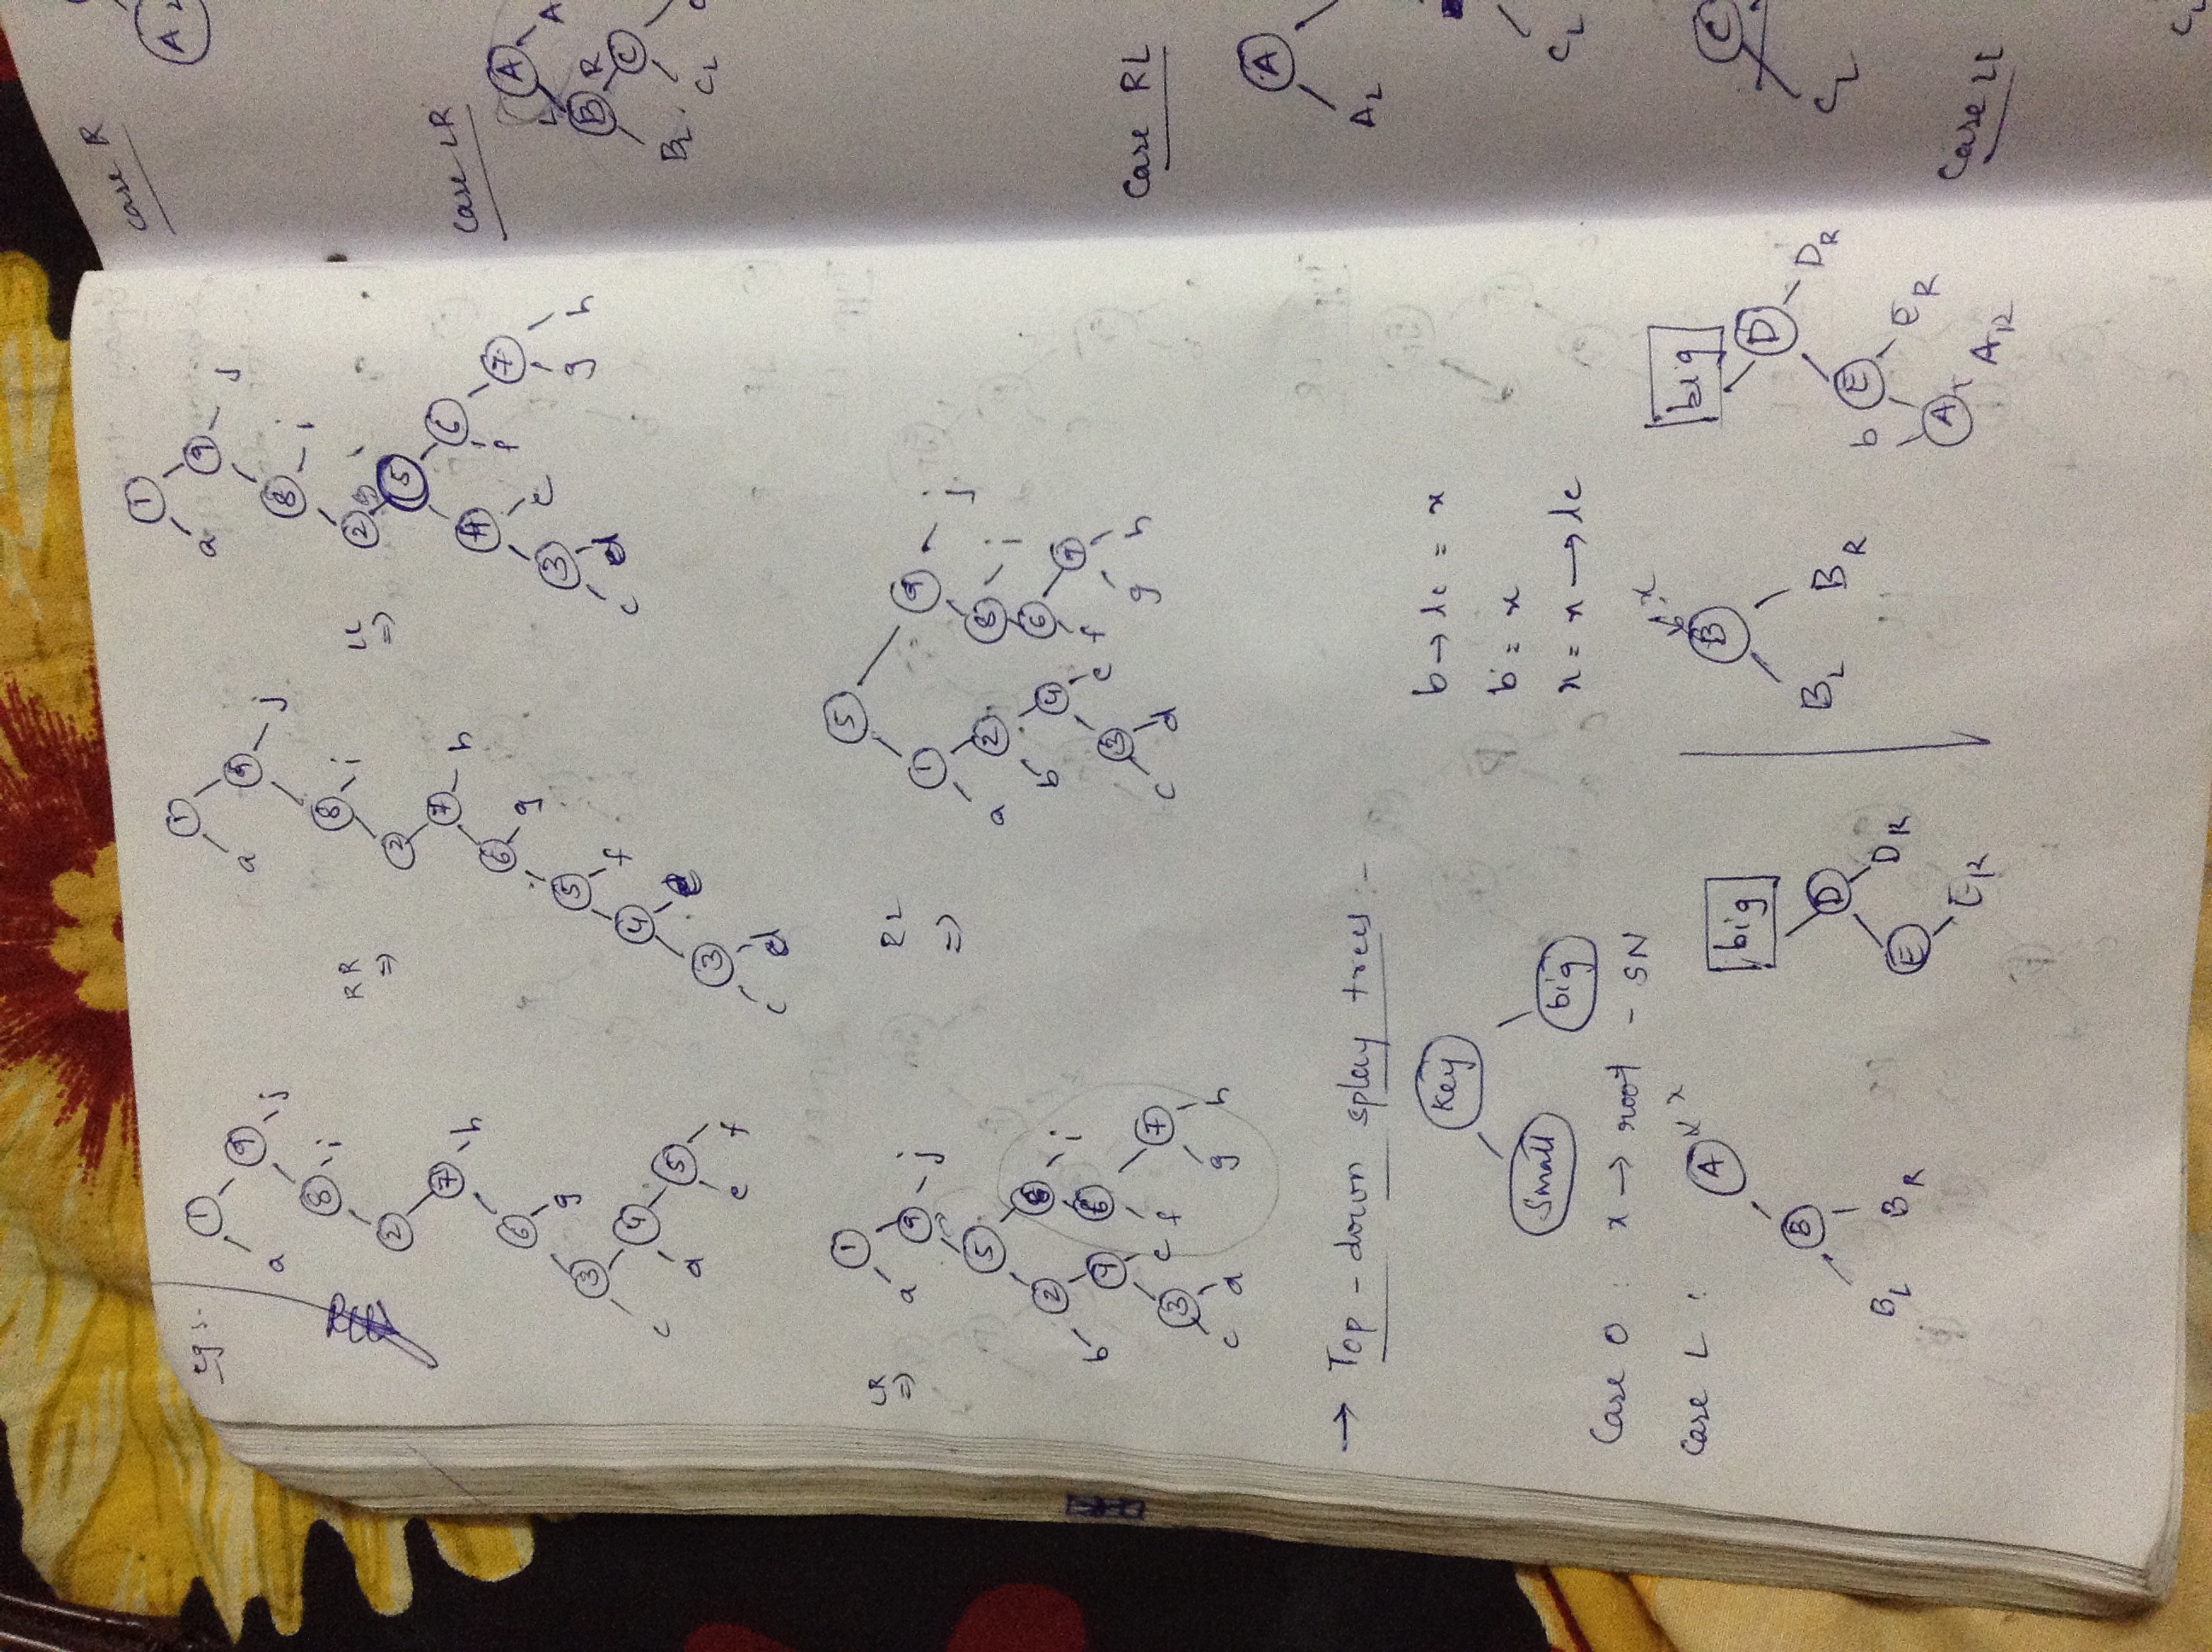 eg :-
1
a 9
8 j
i
2
7
h
6
g
3
c 4
d 5
e f
RR
=>
1
a 9
j
8
i
2
7
h
6
g
5
f
4
e
3
c d
LL
=>
1
a 9
j
8
i
2
5
4 6
f 7
3 e
g h
c d
LR
=>
1
a 9
j
5
2 8
b i
4 6
3 e f 7
c d g h
RL
=>
5
1 9
j
a 2 8
i
b 4 6
3 e f 9
c d g h
→ Top - down splay trees :-
Key
Small big
b → lc = x
b = x
x = x → lc
Case 0 : x → root - SN
Case L :
A x
B
BL BR
big
D
E DR
ER
x
B
BL BR
big
D
DR
b E
ER
A
AR
Case R
A
Case LR
A
L
B R
C
BL
CL
Case RL
A
AL
CL
C
CL
Case LL